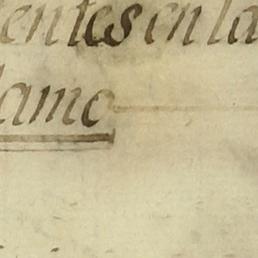 entes en la
lamo